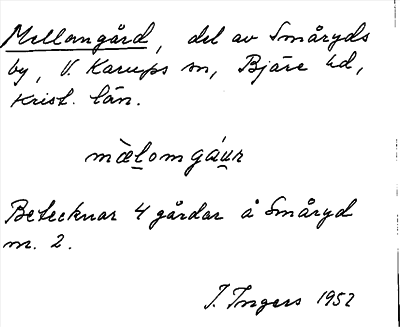 Mellangård, del av Småryds
by, V. Karups sn, Bjäre hd,
Krist. län.
mæ̀lomgáur
Betecknar 4 gårdar å Småryd
nr. 2.
I. Ingers 1952